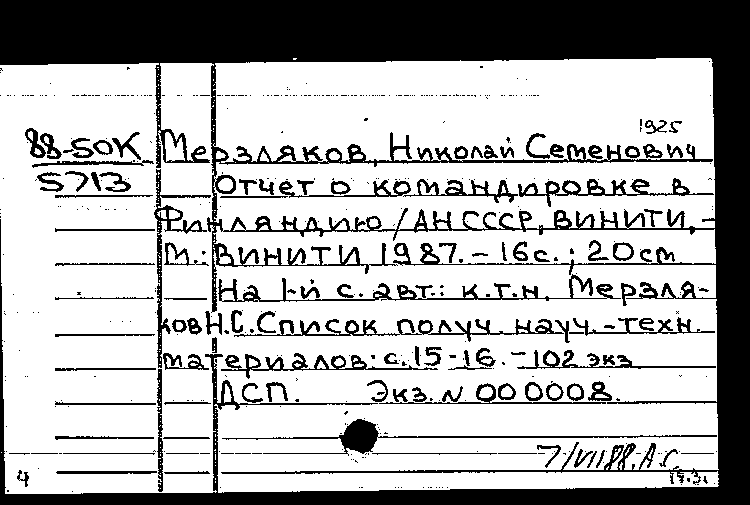 1925
88-50К Мерзляков, Николай Семенович
5713 Отчет о командировке в
Финляндию / АН СССР, ВИНИТИ, -
М.: ВИНИТИ, 1987. - 16 с. ; 20 cm
На 1-й с. авт.: к.т.н. Мерзля-
ков Н.С. Список получ. науч.-техн.
материалов: с. 15-16. - 102 экз
ДСП. Экз. N 000008.
7/VII 88. А.С.
4